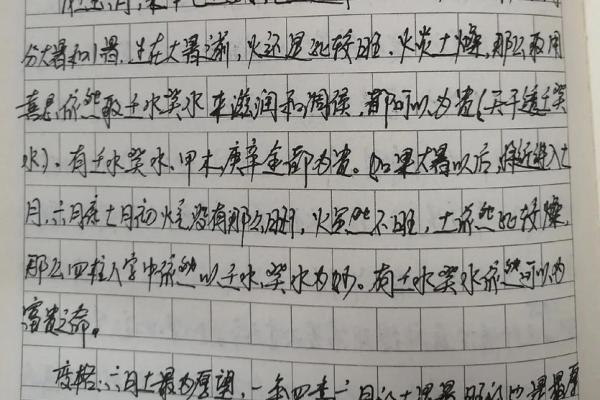 分大暑和小暑,生在大暑之前,火还是比较旺.火炎土燥,那么取用
喜忌依然取壬水癸水来滋润和调候,都可以为贵(天干透壬癸
水)。有壬水癸水、甲木、庚辛金都为贵。如果大暑以后,接近进入七
月,六月底七月初火是没有那么旺,火虽然不旺,土依然比较燥,
那么四柱八字中依然以壬水,癸水为妙。有壬水癸水依然可以为
富贵之命。
变格:六月土最为厚望,一年四季六月的土是最旺的也是最厚